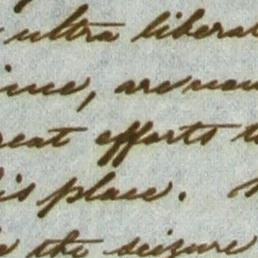 ultra liberal
ince, are now
reat efforts to
is place.
the seizure